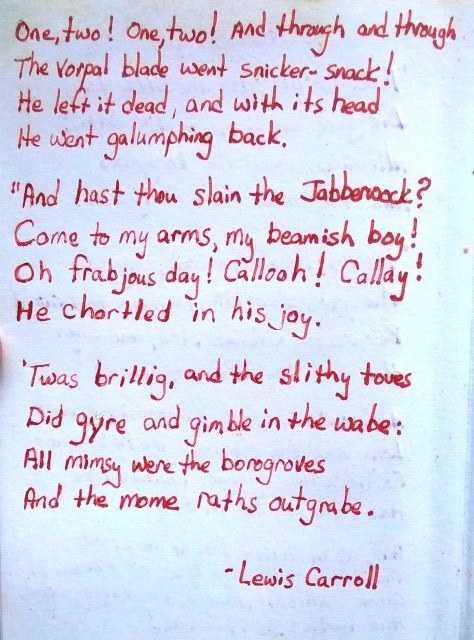 One, two! One, two! And through and through
The vorpal blade went snicker-snack!
He left it dead, and with its head
He went galumphing back.
"And hast thou slain the Jabberwock?
Come to my arms, my beamish boy!
Oh frabjous day! Callooh! Callay!
He chortled in his joy.
'Twas brillig, and the slithy toves
Did gyre and gimble in the wabe:
All mimsy were the borogroves
And the mome raths outgrabe.
-Lewis Carroll